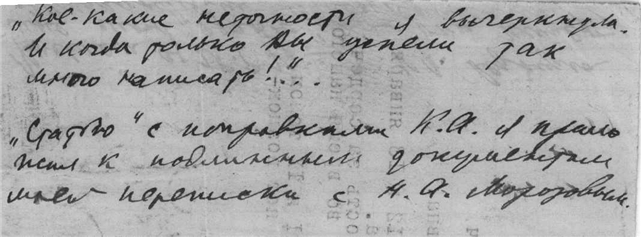 „Кое-какие неточности я вычеркнула.
И когда только Вы успели так
много написать!“.
„Статью“ с поправками К.А. я прило
жил к подлинным документам
моей переписки с Н.А. Морозовым.